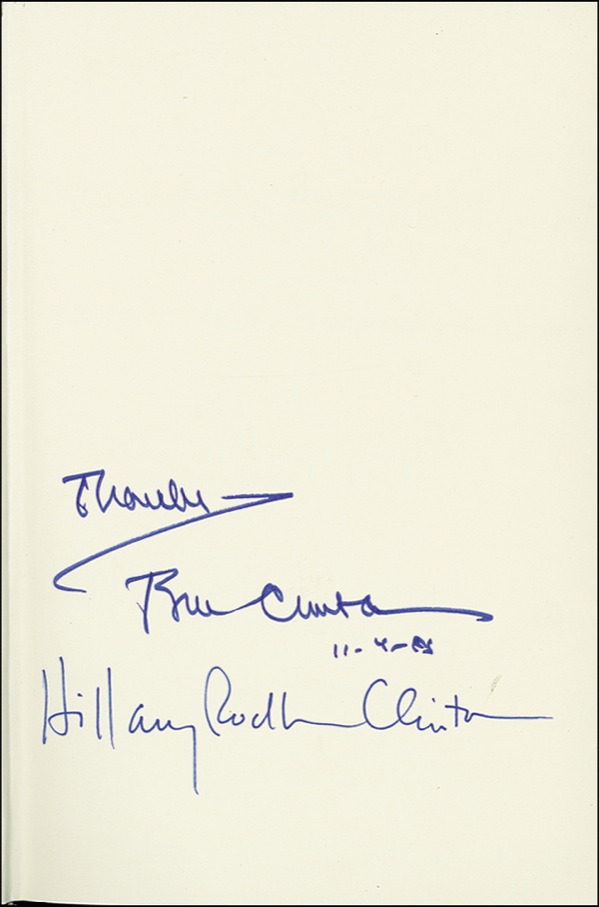 Thanks —
Bill Clinton
11-4-
Hillary Rodham Clinton